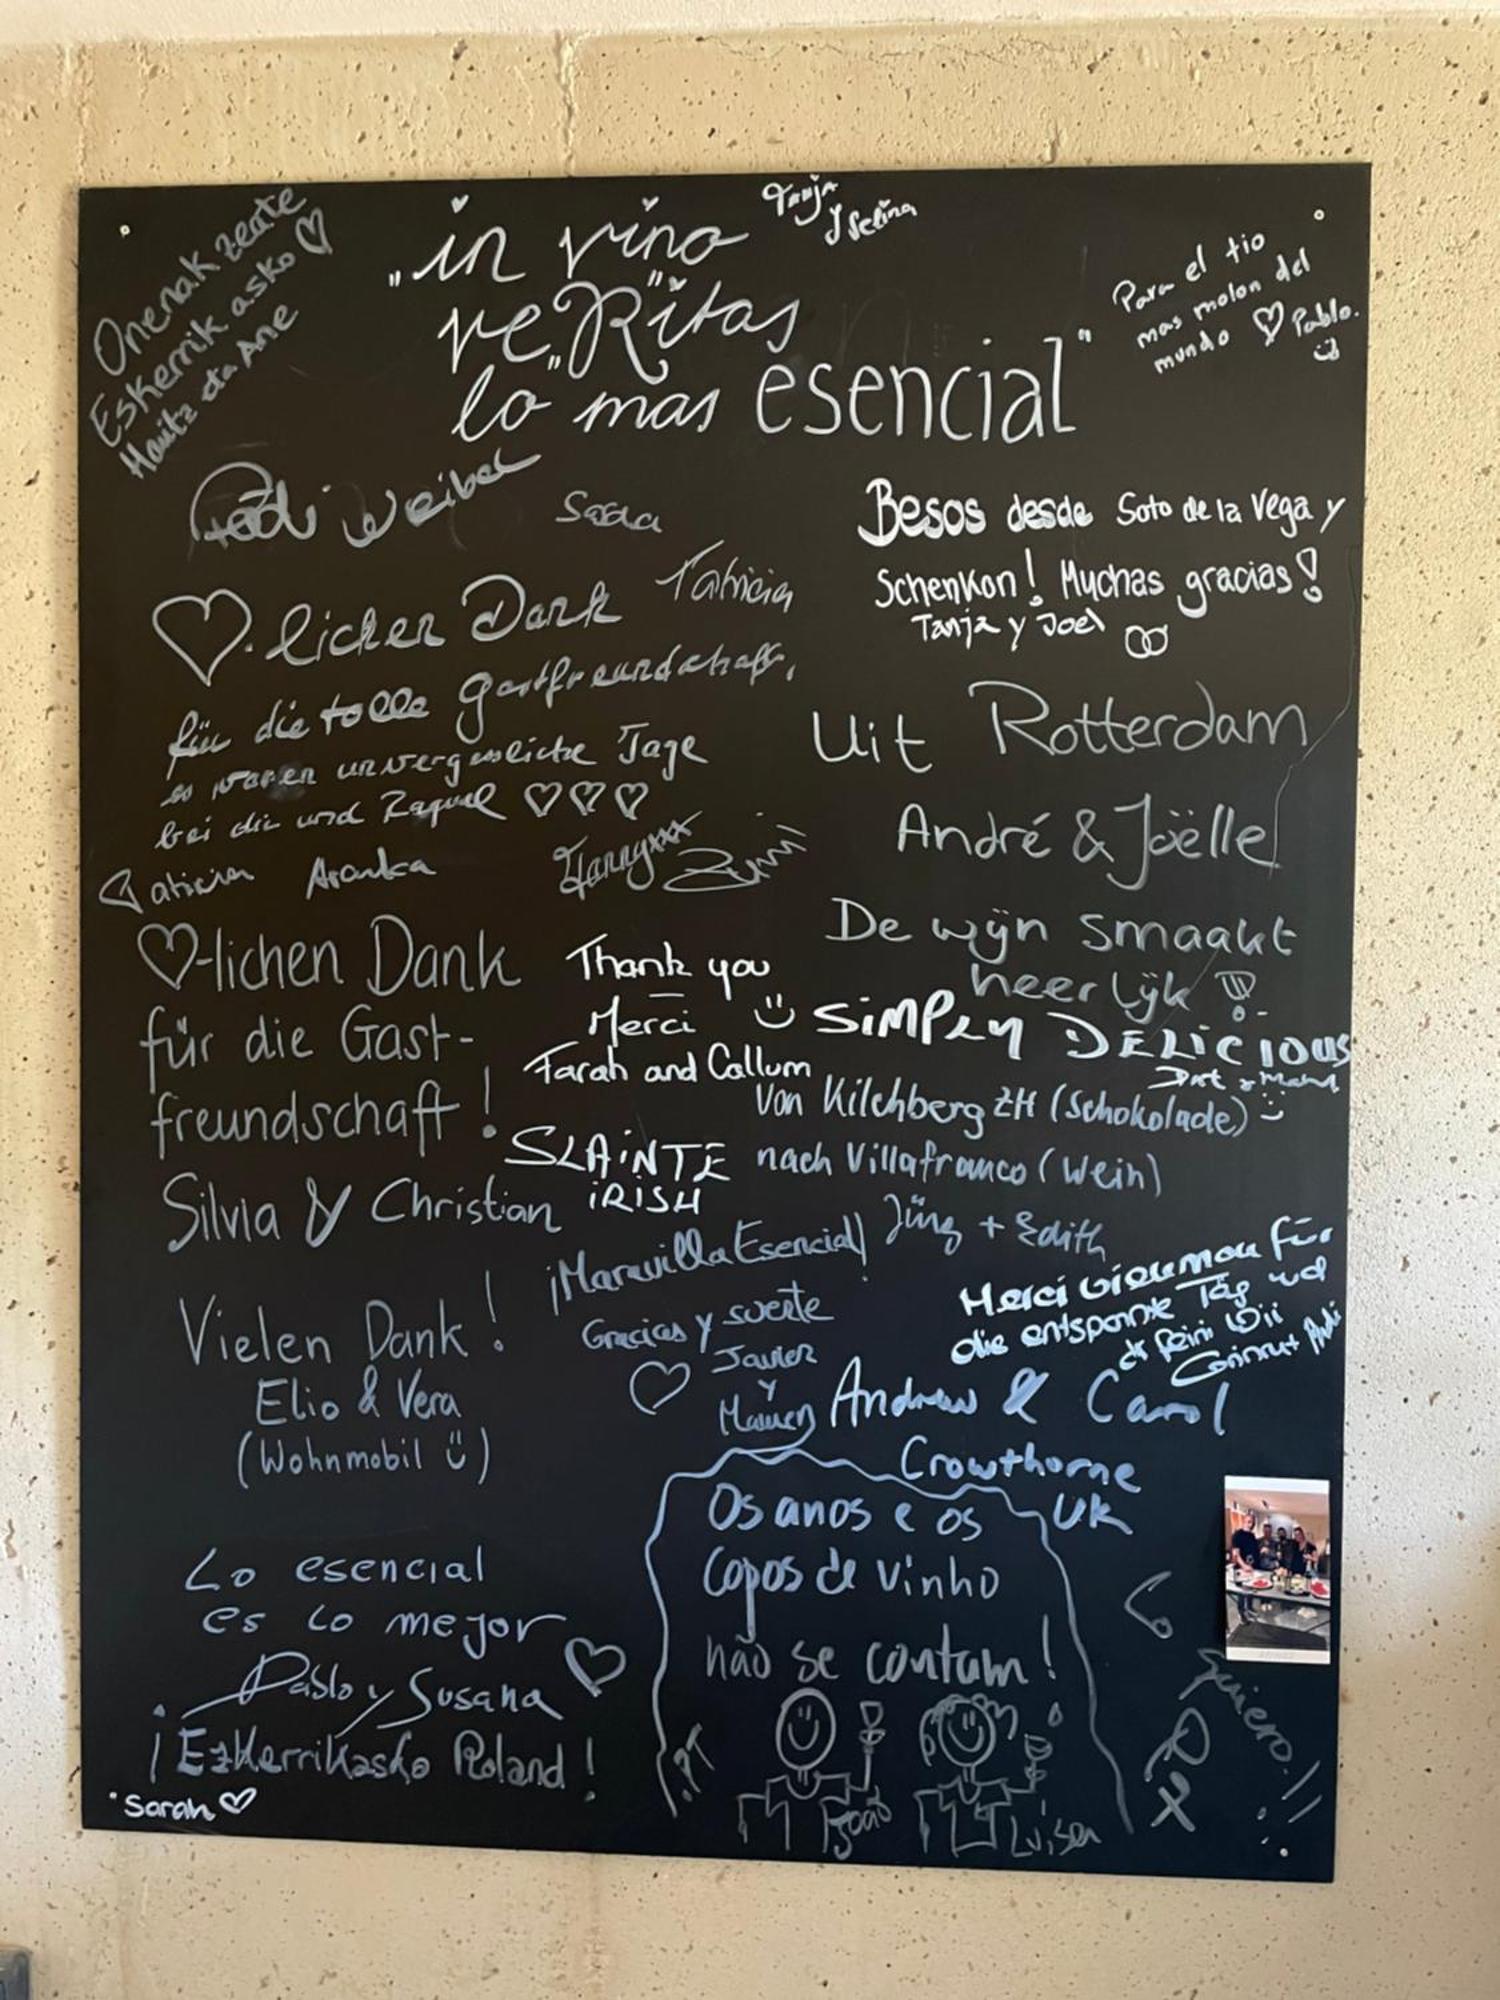 Onenak zeate
Eskerrik asko ♡
Haritz eta Ane
"in vino
ve"Ritas"
lo mas esencial"
Tanja
y Selina
Para el tio
mas molon del
mundo ♡ Pablo.
weibel
Patricia
Besos desde Soto de la Vega y
Schenkon! Muchas gracias!
Tanja y Joel
♡-licher Dank
für die tolle Gastfreundschaft,
es waren unvergessliche Tage
bei dir und Raquel ♡♡♡
Patricia Aranka
Uit Rotterdam
André & Joëlle
De wijn smaakt
heerlijk
♡-lichen Dank
für die Gast-
freundschaft!
Silvia & Christian
Thank you
Merci
Farah and Callum
SiMPLY DELiCious
Von Kilchberg ZH (Schokolade)
nach Villafranco (Wein)
Jürg + Edith
SLAiNTE
iRiSH
¡Maravilla Esencial!
Gracias y suerte
Javier
y
Merci vielmau für
die entspannte Täg und
dr feini Wii
Andrew & Carol
Crowthorne
UK
Vielen Dank!
Elio & Vera
(Wohnmobil)
Lo esencial
es lo mejor
Pablo y Susana
¡Ezkerrikasko Roland!
Sarah ♡
Os anos e os
copos de vinho
não se contam!
.PT
João
Luisa
Lo
quiero!!